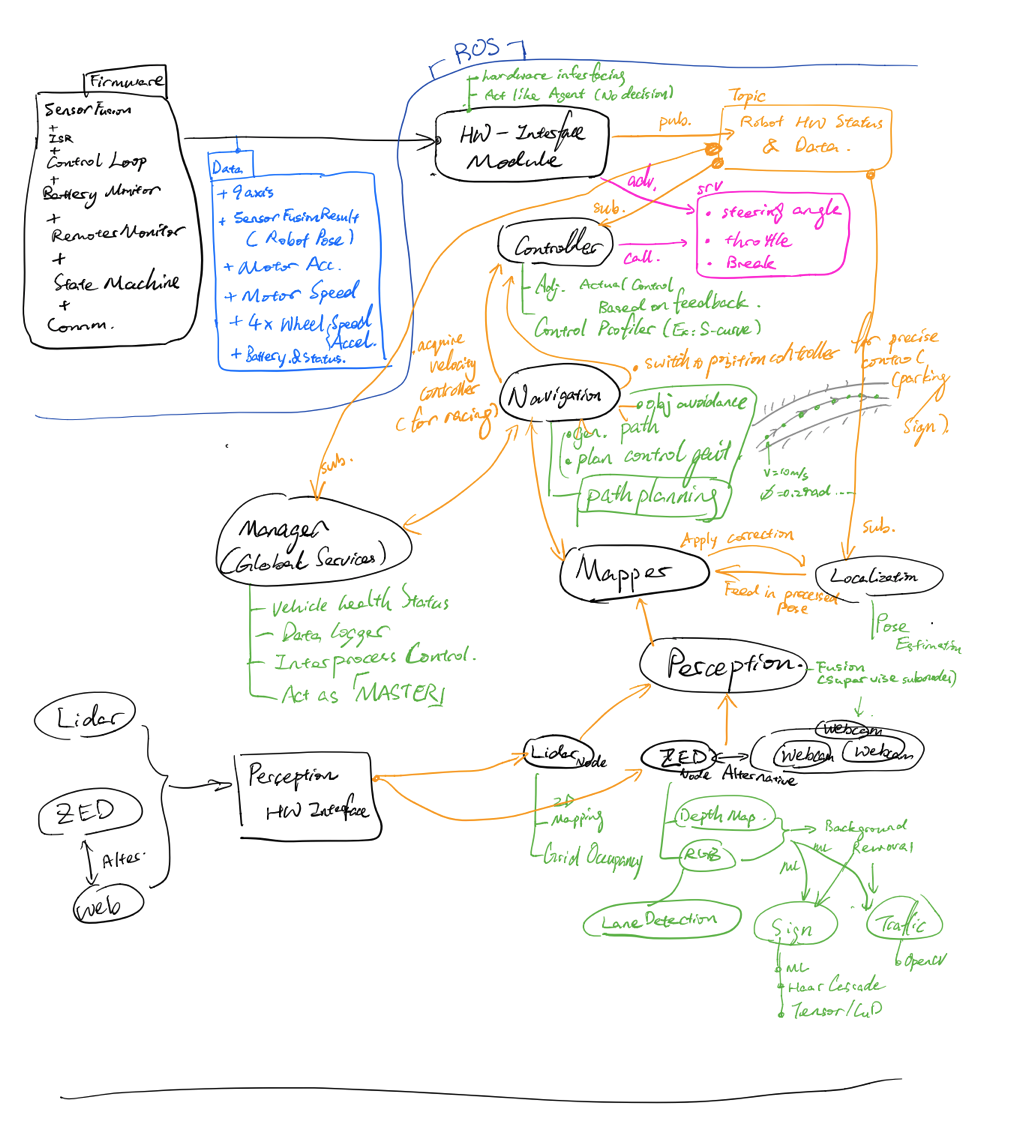 ROS
Firmware
Sensor Fusion
+
ISR
+
Control Loop
+
Battery Monitor
+
Remoter Monitor
+
State Machine
+
Comm.
Data
+ 9 axis
+ Sensor Fusion Result
(Robot Pose)
+ Motor Acc.
+ Motor Speed
+ 4x Wheel Speed
Accel.
+ Battery & Status.
- hardware interfacing
- Act like Agent (No decision)
HW-Interface
Module
pub.
Topic
Robot HW Status
& Data.
adv.
srv
• steering angle
• throttle
• Break
sub.
Controller
call.
Adj. Actual Control
Based on feedback.
Control Profiler (Ex: S-curve)
acquire
velocity
controller
(for racing)
• switch to position controller
for precise
control
(parking
sign).
Navigation
• obj avoidance
• gen. path
• plan control
path planning
V=10m/s
sub.
Manager
(Global Services)
- Vehicle health Status
- Data logger
- Interprocess Control.
- Act as 「MASTER」
Mapper
Apply correction
Feed in processed
pose
sub.
Localization
Pose
Estimation
Perception.
- Fusion
(supervise subnodes)
Lidar
ZED
Alter.
Web
Perception
HW Interface
Lidar Node
2D
- Mapping
- Grid Occupancy
ZED
Node
Alternative
Webcam
Webcam
Webcam
Depth Map.
RGB
Lane Detection
Background
Removal
ML
ML
Sign
Traffic
• ML
• Haar Cascade
• Tensor/CuD
OpenCV